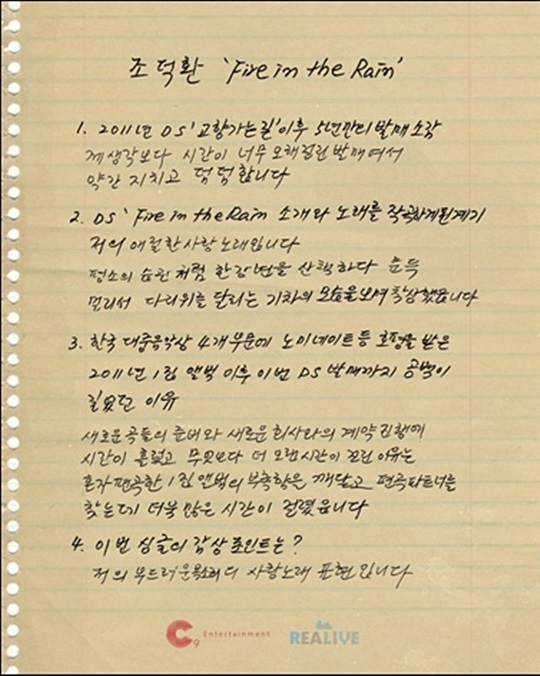 조덕환 'Fire in the Rain'
1. 2011년 DS '고향가는길' 이후 5년만의 발매 소감
제 생각보다 시간이 너무 오래걸린 발매여서
약간 지치고 덤덤합니다
2. DS 'Fire in the Rain 소개와 노래를 작곡하게된계기
저의 애절한 사랑 노래입니다
평소의 습관처럼 한강변을 산책하다 문득
멀리서 다리위를 달리는 기차의 모습을 보며 착상했읍니다
3. 한국 대중음악상 4개부문에 노미네이트 등 호평을 받은
2011년 1집 앨범 이후 이번 DS 발매까지 공백이
길었던 이유
새로운곡들의 준비와 새로운 회사와의 계약 진행에
시간이 흘렀고 무엇보다 더 오랜시간이 걸린 이유는
혼자 편곡한 1집 앨범의 부족함을 깨닫고 편곡파트너를
찾는데 더욱 많은 시간이 걸렸읍니다
4. 이번 싱글의 감상 포인트는?
저의 부드러운 목소리의 사랑노래 표현입니다
C9 Entertainment REALIVE